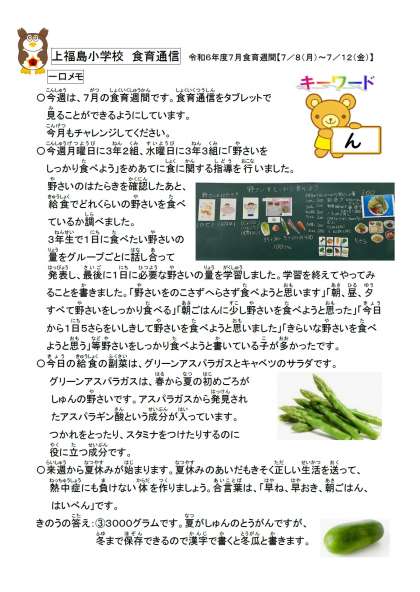 上福島小学校　食育通信　令和６年度７月食育週間【７／８（月）～７／１２（金）】
一口メモ
キーワード
ん
○今週は、７月の食育週間です。食育通信をタブレットで
見ることができるようにしています。
今月もチャレンジしてください。
○今週月曜日に３年２組、水曜日に３年３組に「野さいを
しっかり食べよう」をめあてに食に関する指導を行いました。
野さいのはたらきを確認したあと、
給食でどれくらいの野さいを食べ
ているか調べました。
３年生で１日に食べたい野さいの
量をグループごとに話し合って
発表し、最後に１日に必要な野さいの量を学習しました。学習を終えてやってみ
ることを書きました。「野さいをのこさずへらさず食べようと思います」「朝、昼、夕
すべて野さいをしっかり食べる」「朝ごはんに少し野さいを食べようと思った」「今日
から１日５さらをいしきして野さいを食べようと思いました」「きらいな野さいを食べ
ようと思う」等野さいをしっかり食べようと書いている子が多かったです。
○今日の給食の副菜は、グリーンアスパラガスとキャベツのサラダです。
グリーンアスパラガスは、春から夏の初めごろが
しゅんの野さいです。アスパラガスから発見され
たアスパラギン酸という成分が入っています。
つかれをとったり、スタミナをつけたりするのに
役に立つ成分です。
○来週から夏休みが始まります。夏休みのあいだもきそく正しい生活を送って、
熱中症にも負けない体を作りましょう。合言葉は、「早ね、早おき、朝ごはん、
はいべん」です。
きのうの答え：③３０００グラムです。夏がしゅんのとうがんですが、
冬まで保存できるので漢字で書くと冬瓜と書きます。